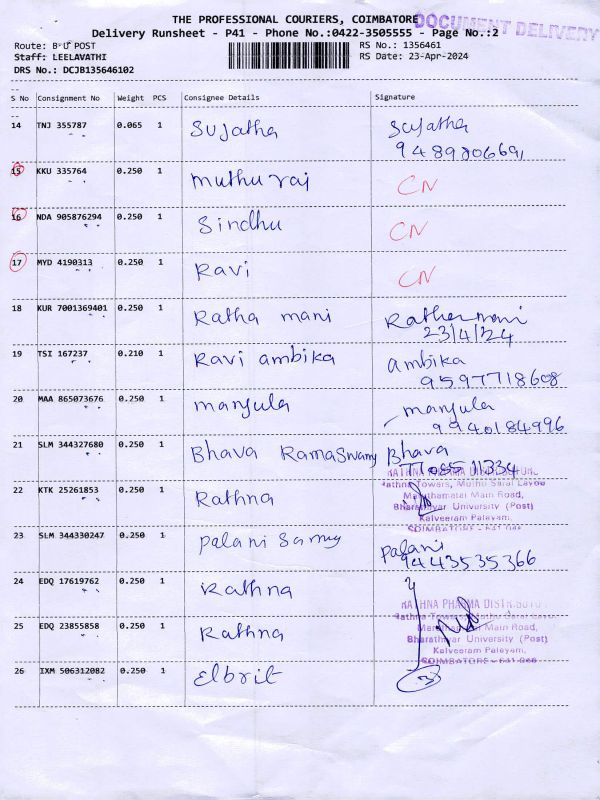 THE PROFESSIONAL COURIERS, COIMBATORE
DOCUMENT DELIVERY
Delivery Runsheet - P41 - Phone No.:0422-3505555 - Page No.:2
Route: B U POST
RS No.: 1356461
Staff: LEELAVATHI
RS Date: 23-Apr-2024
DRS No.: DCJB135646102
--
S No Consignment No Weight PCS Consignee Details Signature
--
14 TNJ 355787 0.065 1 Sujatha Sujatha
15 KKU 335764 0.250 1 Muthu raj CN
16 NDA 905876294 0.250 1 Sindhu CN
17 MYD 4190313 0.250 1 Ravi CN
18 KUR 7001369401 0.250 1 Ratha mani
23/4/24
19 TSI 167237 0.210 1 Ravi ambika ambika
9597718608
20 MAA 865073676 0.250 1 manjula manjula
9940184996
21 SLM 344327680 0.250 1 Bhava RamaSwamy Bhava
RATHNA PHARMA DISTRIBUTORS
22 KTK 25261853 0.250 1 Rathna
Marudhamalai Main Road,
Bharathiyar University (Post)
Kalveeram Palayam,
COIMBATORE - 641 046
23 SLM 344330247 0.250 1 palani Samy palani
9443535366
24 EDQ 17619762 0.250 1 Rathna
RATHNA PHARMA DISTRIBUTO
25 EDQ 23855858 0.250 1 Rathna
Bharathiyar University (Post)
Kalveeram Palayam,
COIMBATORE - 641 046
26 IXM 506312082 0.250 1 Elbrit 3